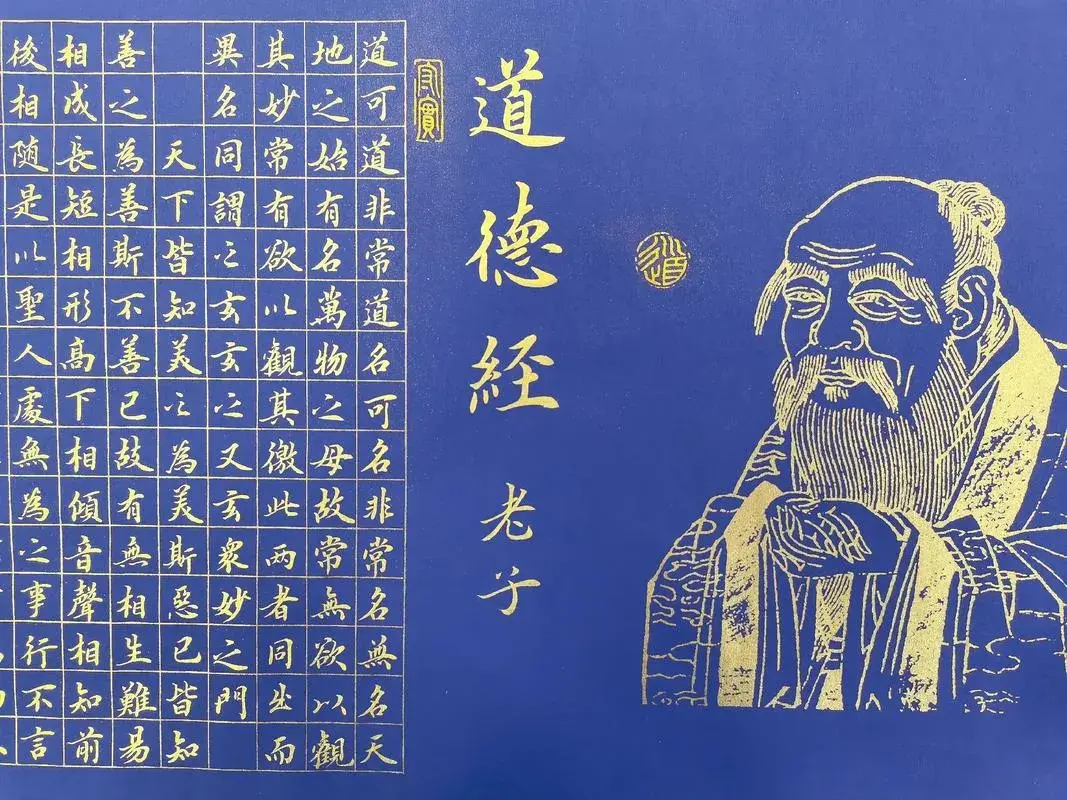 道
道德経
老子
道可道非常道名可名非常名無名天
地之始有名萬物之母故常無欲以觀
其妙常有欲以觀其徼此两者同出而
異名同謂之玄玄之又玄衆妙之門
天下皆知美之為美斯惡已皆知
善之為善斯不善已故有無相生難易
相成長短相形高下相傾音聲相知前
後相随是以聖人處無為之事行不言